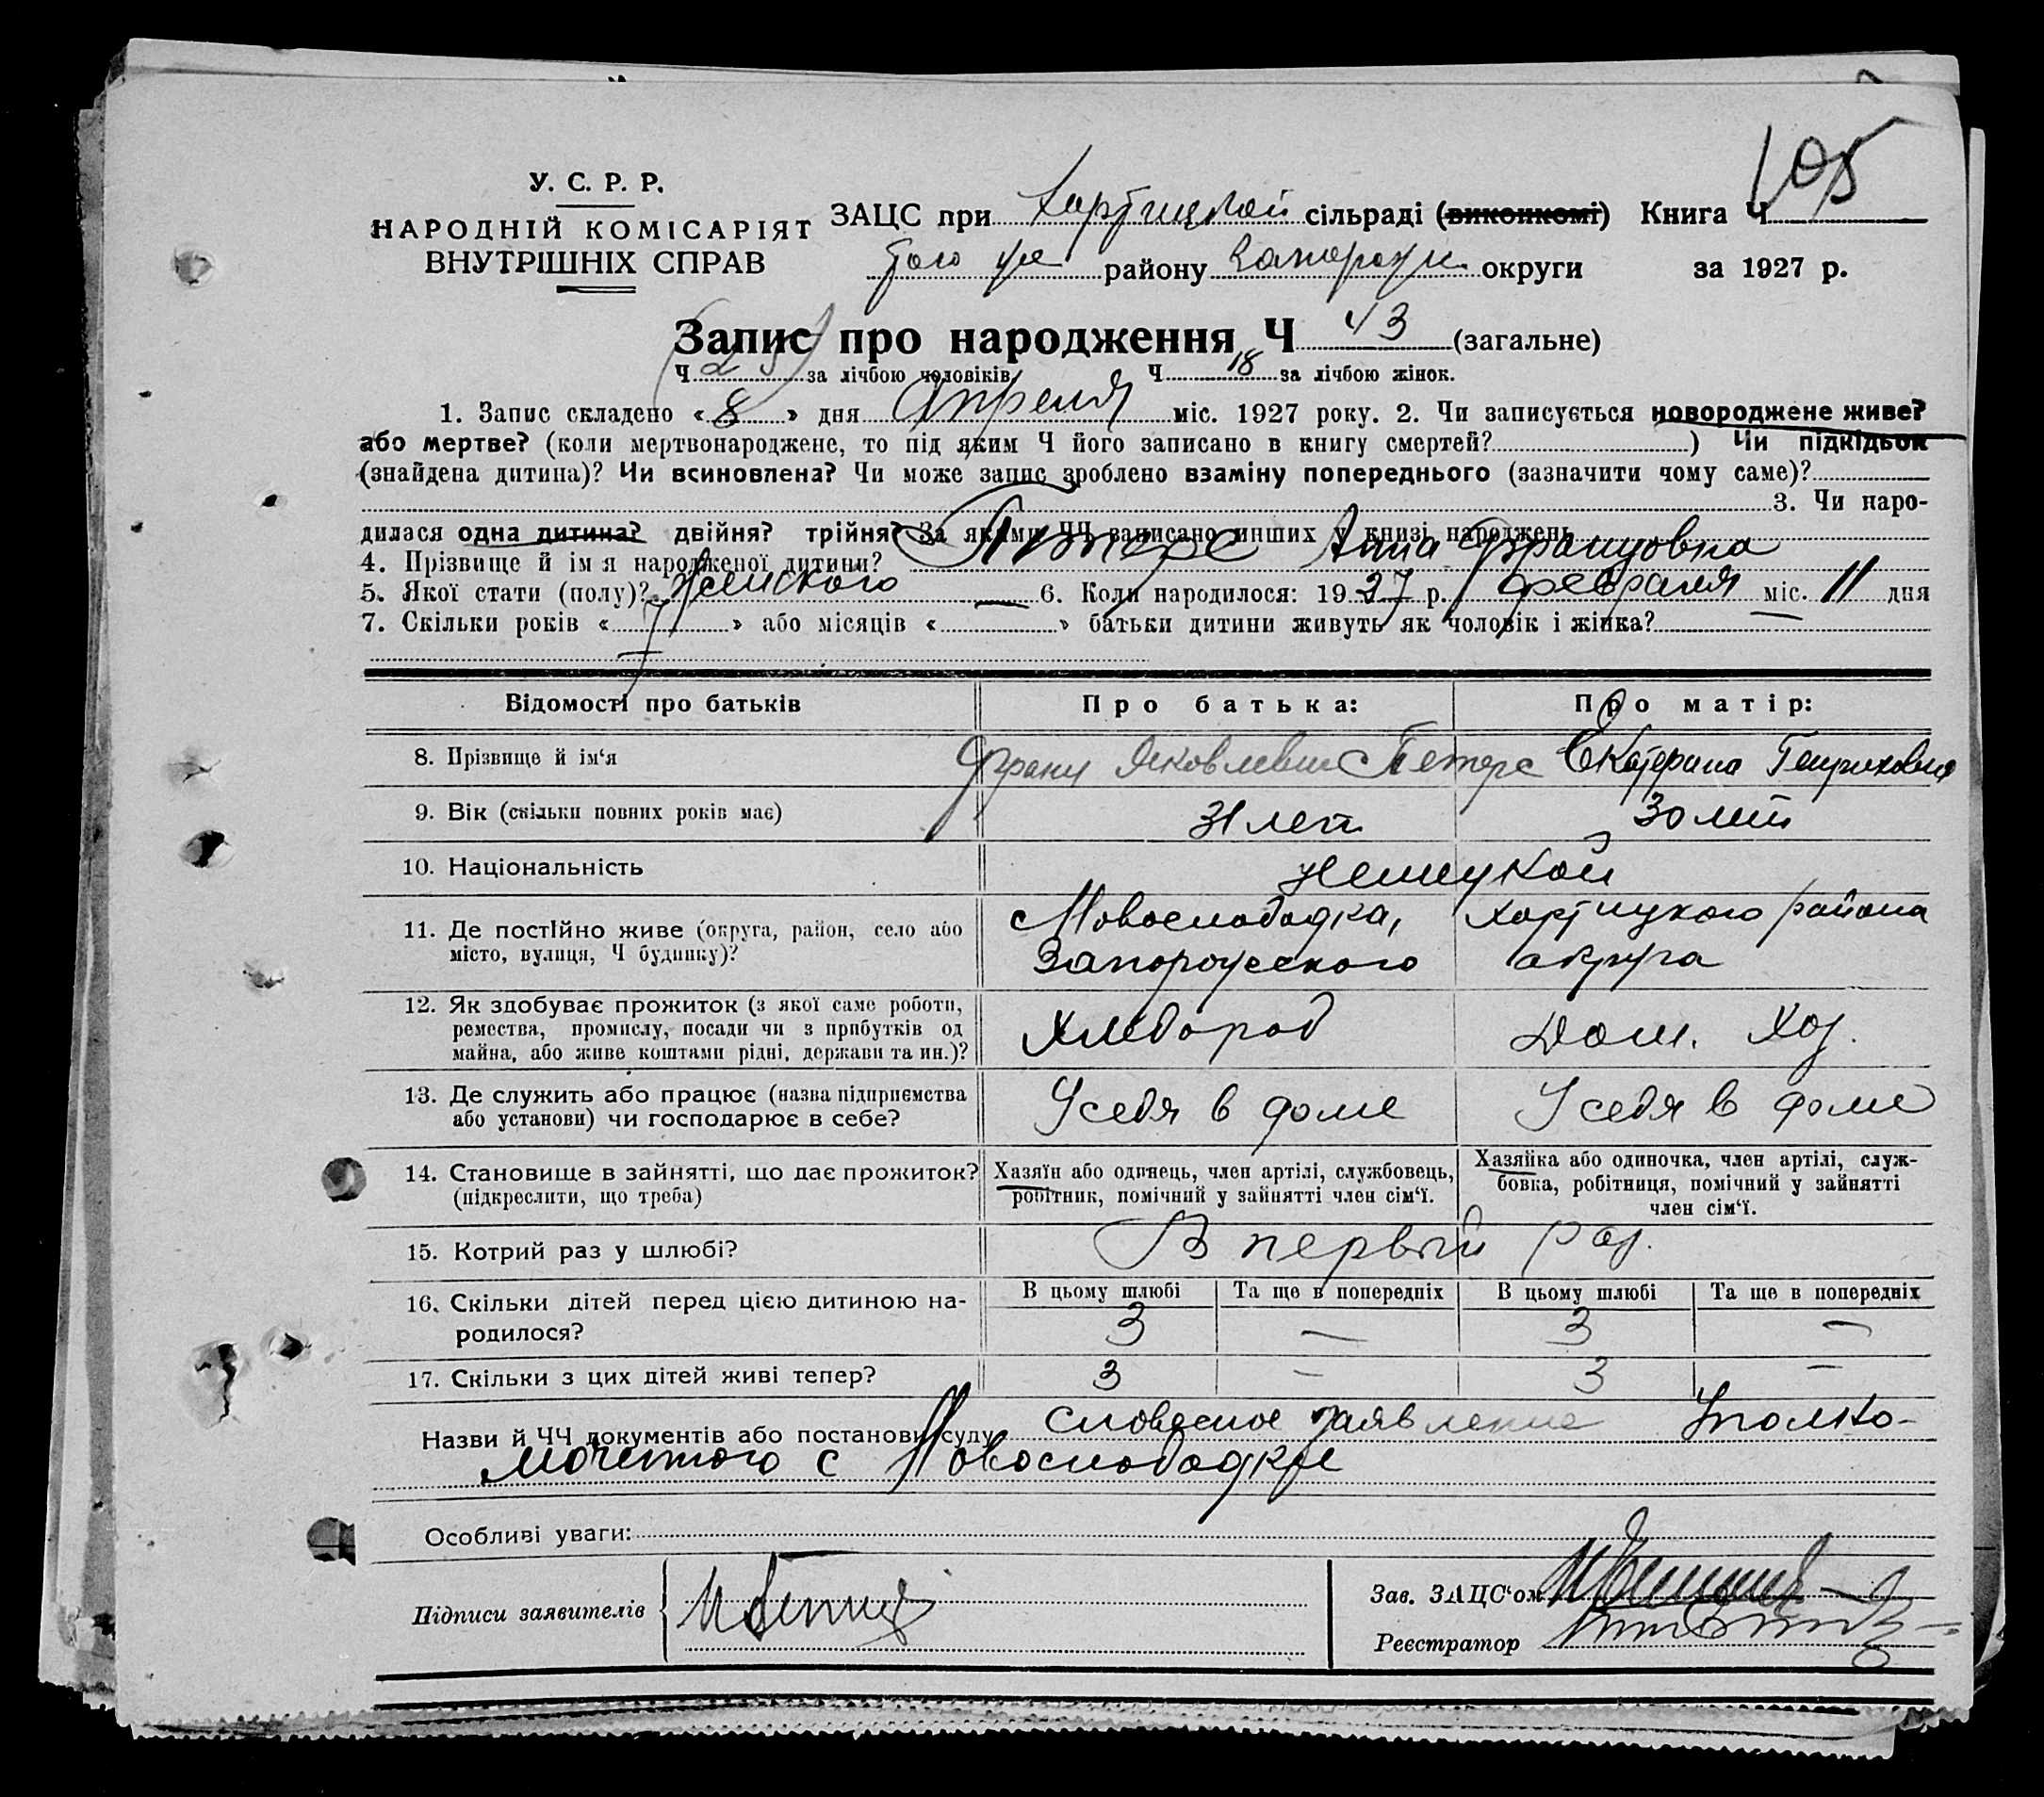 105
У. С. Р. Р.
НАРОДНІЙ КОМІСАРІЯТ
ВНУТРІШНІХ СПРАВ
ЗАЦС при Хортицкой сільраді (виконкомі) Книга Ч
того же району Запорож. округи за 1927 р.
Запис про народження Ч 43 (загальне)
Ч 25 за лічбою чоловіків Ч 18 за лічбою жінок.
1. Запис складено «8» дня Апреля міс. 1927 року. 2. Чи записується новороджене живе?
або мертве? (коли мертвонароджене, то під яким Ч його записано в книгу смертей?) Чи підкідьок
(знайдена дитина)? Чи всиновлена? Чи може запис зроблено взаміну попереднього (зазначити чому саме)?
3. Чи наро-
дилася одна дитина? двійня? трійня? За якими ЧЧ записано инших у книзі народжень
4. Прізвище й ім я народженої дитини? Петерс Анна Францовна
5. Якої стати (полу)? Женского — 6. Коли народилося: 1927 р. февраля міс. 11 дня
7. Скільки років «7» або місяців «» батьки дитини живуть як чоловік і жінка? —
Відомості про батьків Про батька: Про матір:
8. Прізвище й ім‘я Франц Яковлевич Петерс Екатерина Генриховна
9. Вік (скільки повних років має) 31 лет 30 лет
10. Національність немецкой
11. Де постійно живе (округа, район, село або
місто, вулиця, Ч будинку)?
Новослободка, Хортицкого района
Запорожского округа
12. Як здобуває прожиток (з якої саме роботи,
ремества, промислу, посади чи з прибутків од
майна, або живе коштами рідні, держави та ин.)?
Хлебороб Дом. Хоз.
13. Де служить або працює (назва підприємства
або установи) чи господарює в себе?
У себя в доме У себя в доме
14. Становище в зайнятті, що дає прожиток?
(підкреслити, що треба)
Хазяїн або одинець, член артілі, службовець,
робітник, помічний у зайнятті член сім‘ї.
Хазяйка або одиночка, член артілі, служ-
бовка, робітниця, помічний у зайнятті
член сім‘ї.
15. Котрий раз у шлюбі? В первый раз.
16. Скільки дітей перед цією дитиною на-
родилося?
В цьому шлюбі Та ще в попередніх В цьому шлюбі Та ще в попередніх
3 — 3 —
17. Скільки з цих дітей живі тепер? 3 — 3 —
Назви й ЧЧ документів або постанови суду Словесное заявление Уполно-
моченного с Новослободке
Особливі уваги:
Підписи заявителів
Зав. ЗАЦС‘ом
Реєстратор